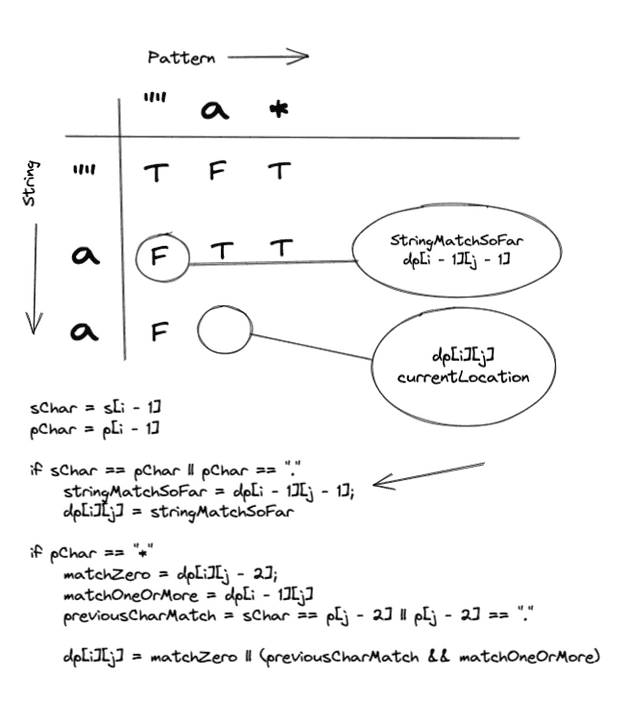 Pattern
"" a *
String
"" T F T
a F T T
StringMatchSoFar
dp[i - 1][j - 1]
a F
dp[i][j]
currentLocation
sChar = s[i - 1]
pChar = p[i - 1]
if sChar == pChar || pChar == "."
stringMatchSoFar = dp[i - 1][j - 1];
dp[i][j] = stringMatchSoFar
if pChar == "*"
matchZero = dp[i][j - 2];
matchOneOrMore = dp[i - 1][j]
previousCharMatch = sChar == p[j - 2] || p[j - 2] == "."
dp[i][j] = matchZero || (previousCharMatch && matchOneOrMore)